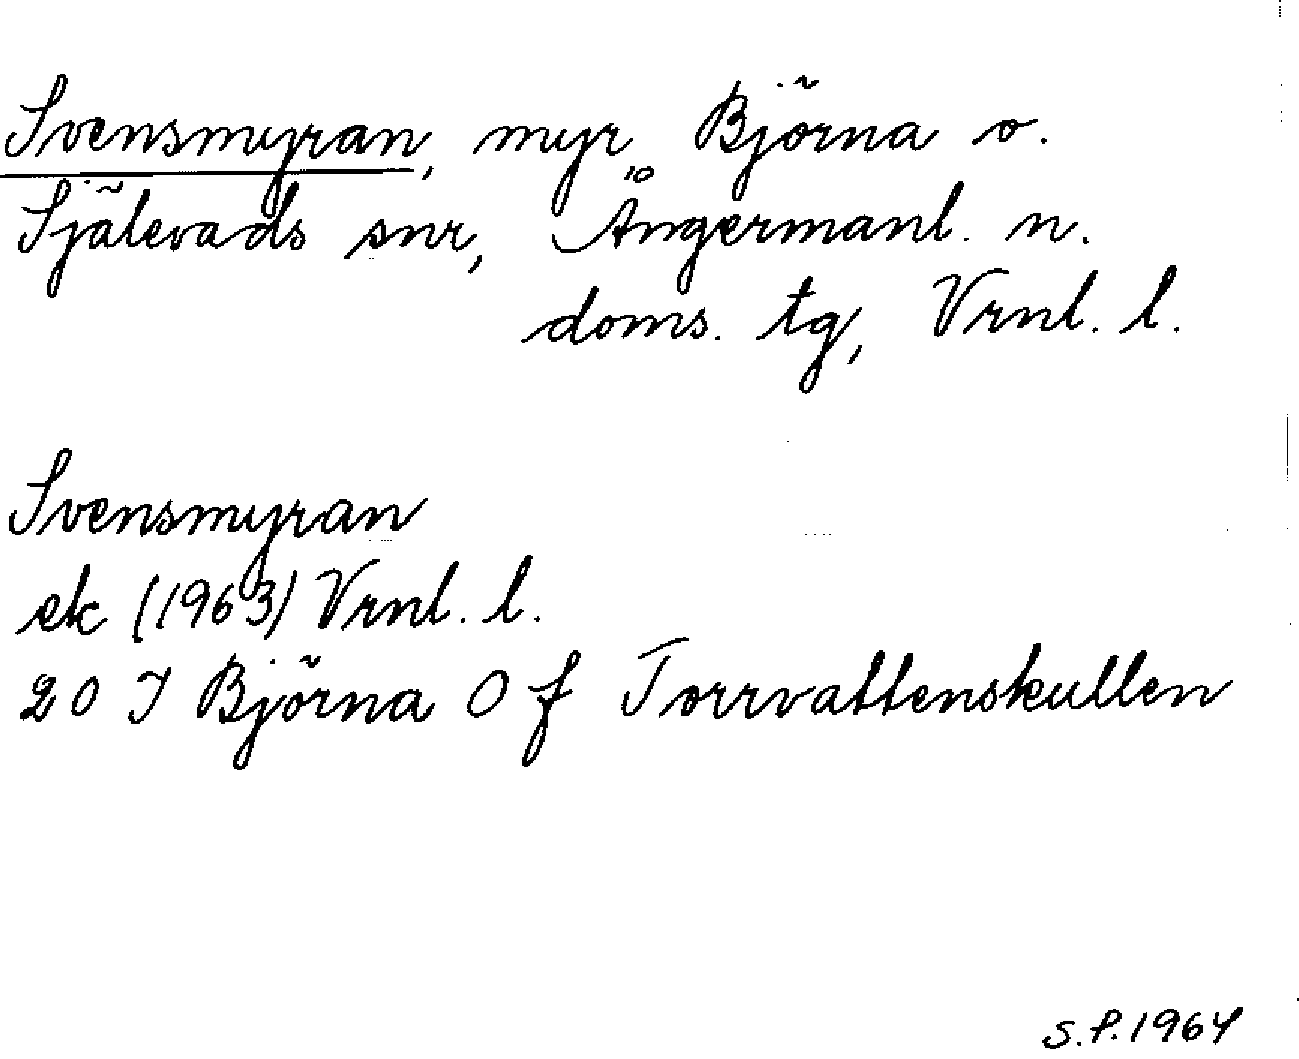 Svensmyran, myr, Björna o.
Själevads snr, Ångermanl. n.
doms. tg, Vrnl. l.
Svensmyran
ek (1963) Vrnl. l.
20 J Björna 0 f Torrvattenskullen
S.P. 1964